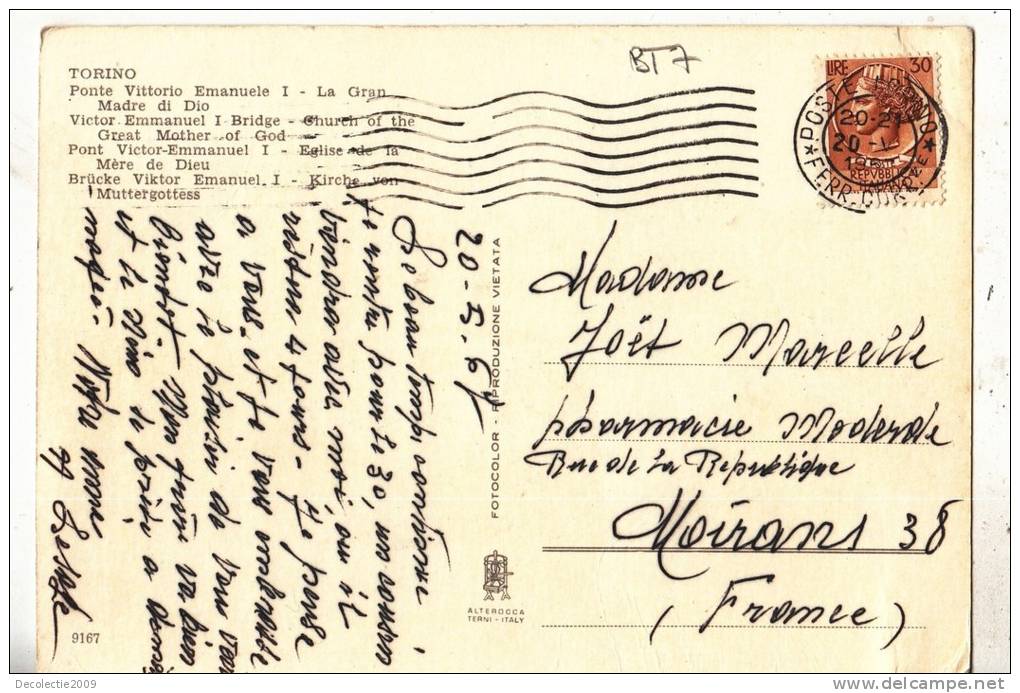 BT7
TORINO
Ponte Vittorio Emanuele I - La Gran
Madre di Dio
Victor Emmanuel I Bridge - Church of the
Great Mother of God
Pont Victor-Emmanuel I - Eglise de la
Mère de Dieu
Brücke Viktor Emanuel I - Kirche von
Muttergottess
LIRE 30
POSTE TORINO
20-21
20
FERR. CORR.
20-5.61
Le beau temps continue,
je monte pour le 30, un cousin
viendra avec moi, ou il
restera 4 jours - Je pense
a vous et je vous embrasse
avec le plaisir de vous voir
bientôt - Mon
et le
Votre
FOTOCOLOR - RIPRODUZIONE VIETATA
ALTEROCCA
TERNI - ITALY
Madame
Joët Marcelle
Pharmacie Moderde
Rue de la Republique
Moirans 38
(France)
9167
Decolectie2009
delcampe.net